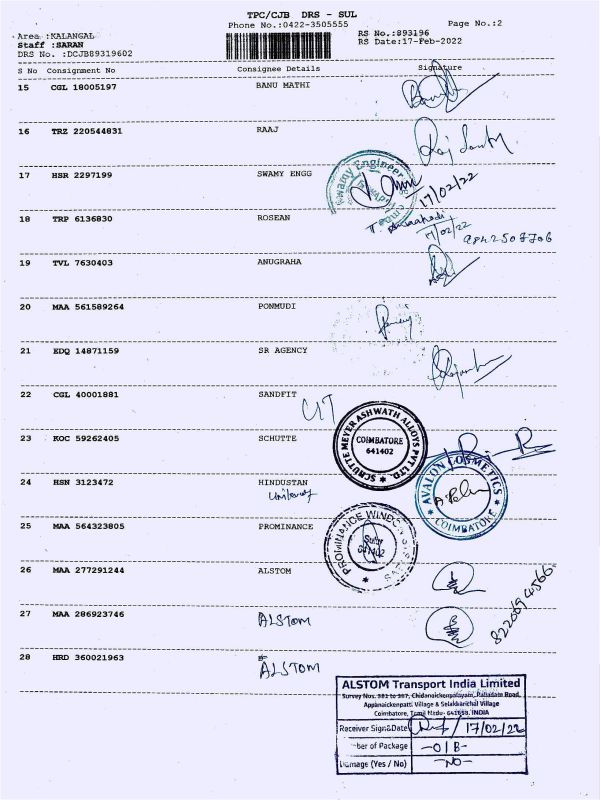 TPC/CJB DRS - SUL
Phone No.:0422-3505555
Page No.:2
Area :KALANGAL
Staff :SARAN
DRS No. :DCJB89319602
RS No.:893196
RS Date:17-Feb-2022
S No Consignment No Consignee Details Signature
15 CGL 18005197 BANU MATHI
16 TRZ 220544831 RAAJ
17 HSR 2297199 SWAMY ENGG
Swamy Engineer
17/02/22
18 TRP 6136830 ROSEAN
17/02/22
19 TVL 7630403 ANUGRAHA
20 MAA 561589264 PONMUDI
21 EDQ 14871159 SR AGENCY
22 CGL 40001881 SANDFIT
23 KOC 59262405 SCHUTTE
SCHUTTE MEYER ASHWATH ALLOYS PVT LTD.
COIMBATORE
641402
24 HSN 3123472 HINDUSTAN
AVALON COSMETICS
COIMBATORE
25 MAA 564323805 PROMINANCE
PROMINANCE WINDOW
26 MAA 277291244 ALSTOM
27 MAA 286923746 ALSTOM
28 HRD 360021963 ALSTOM
ALSTOM Transport India Limited
Survey Nos. 381 to 387, Chidanaickenpalayam, Palladam Road,
Appanaickenpatti Village & Selakkarichal Village
Coimbatore, Tamil Nadu- 641658. INDIA
Receiver Sign&Date 17/02/22
ber of Package -01B-
Damage (Yes / No) -NO-